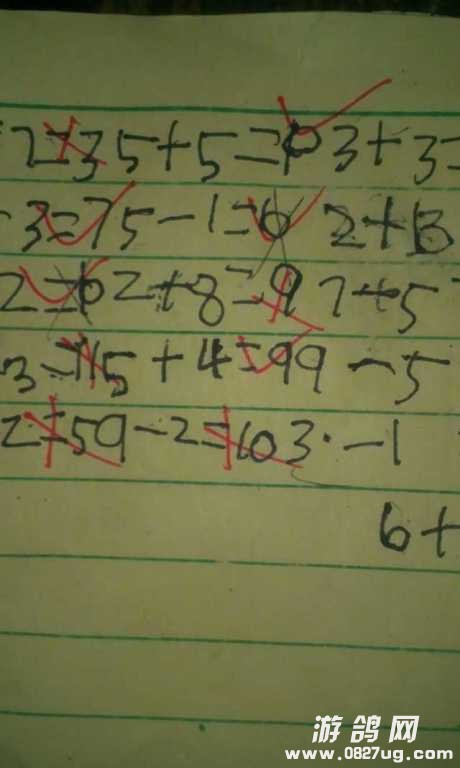 2=35+5=103+3=
-3=75-1=6 2+3
2=62+8=97+5
3=15+4=99-5
2=59-2=103·-1
6+
游鸽网
www.0827ug.com